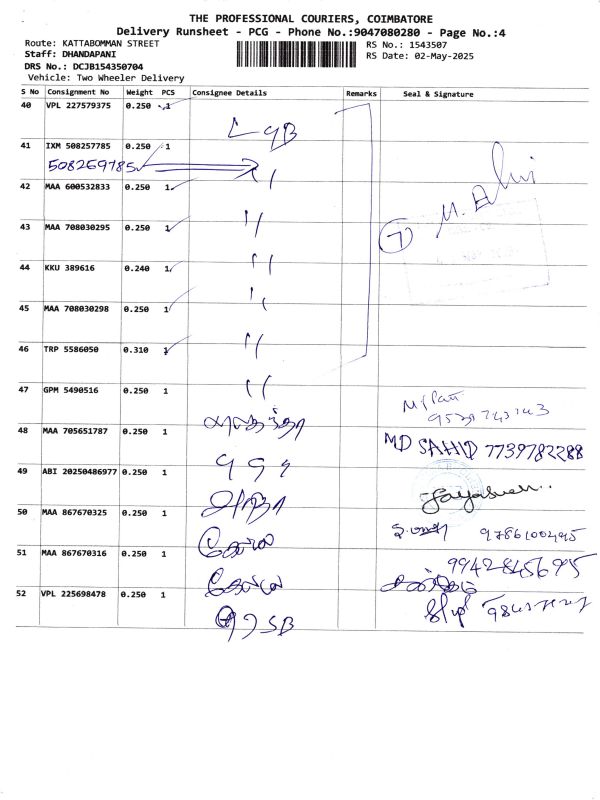 THE PROFESSIONAL COURIERS, COIMBATORE
Delivery Runsheet - PCG - Phone No.:9047080280 - Page No.:4
Route: KATTABOMMAN STREET
RS No.: 1543507
Staff: DHANDAPANI
RS Date: 02-May-2025
DRS No.: DCJB154350704
Vehicle: Two Wheeler Delivery
S No Consignment No Weight PCS Consignee Details Remarks Seal & Signature
40 VPL 227579375 0.250 1
41 IXM 508257785 0.250 1
508269785
42 MAA 600532833 0.250 1
43 MAA 708030295 0.250 1
7
44 KKU 389616 0.240 1
45 MAA 708030298 0.250 1
46 TRP 5586050 0.310 1
47 GPM 5490516 0.250 1
48 MAA 705651787 0.250 1 MD SAHID 7739782288
49 ABI 20250486977 0.250 1
50 MAA 867670325 0.250 1 9786100495
51 MAA 867670316 0.250 1 9942845695
52 VPL 225698478 0.250 1